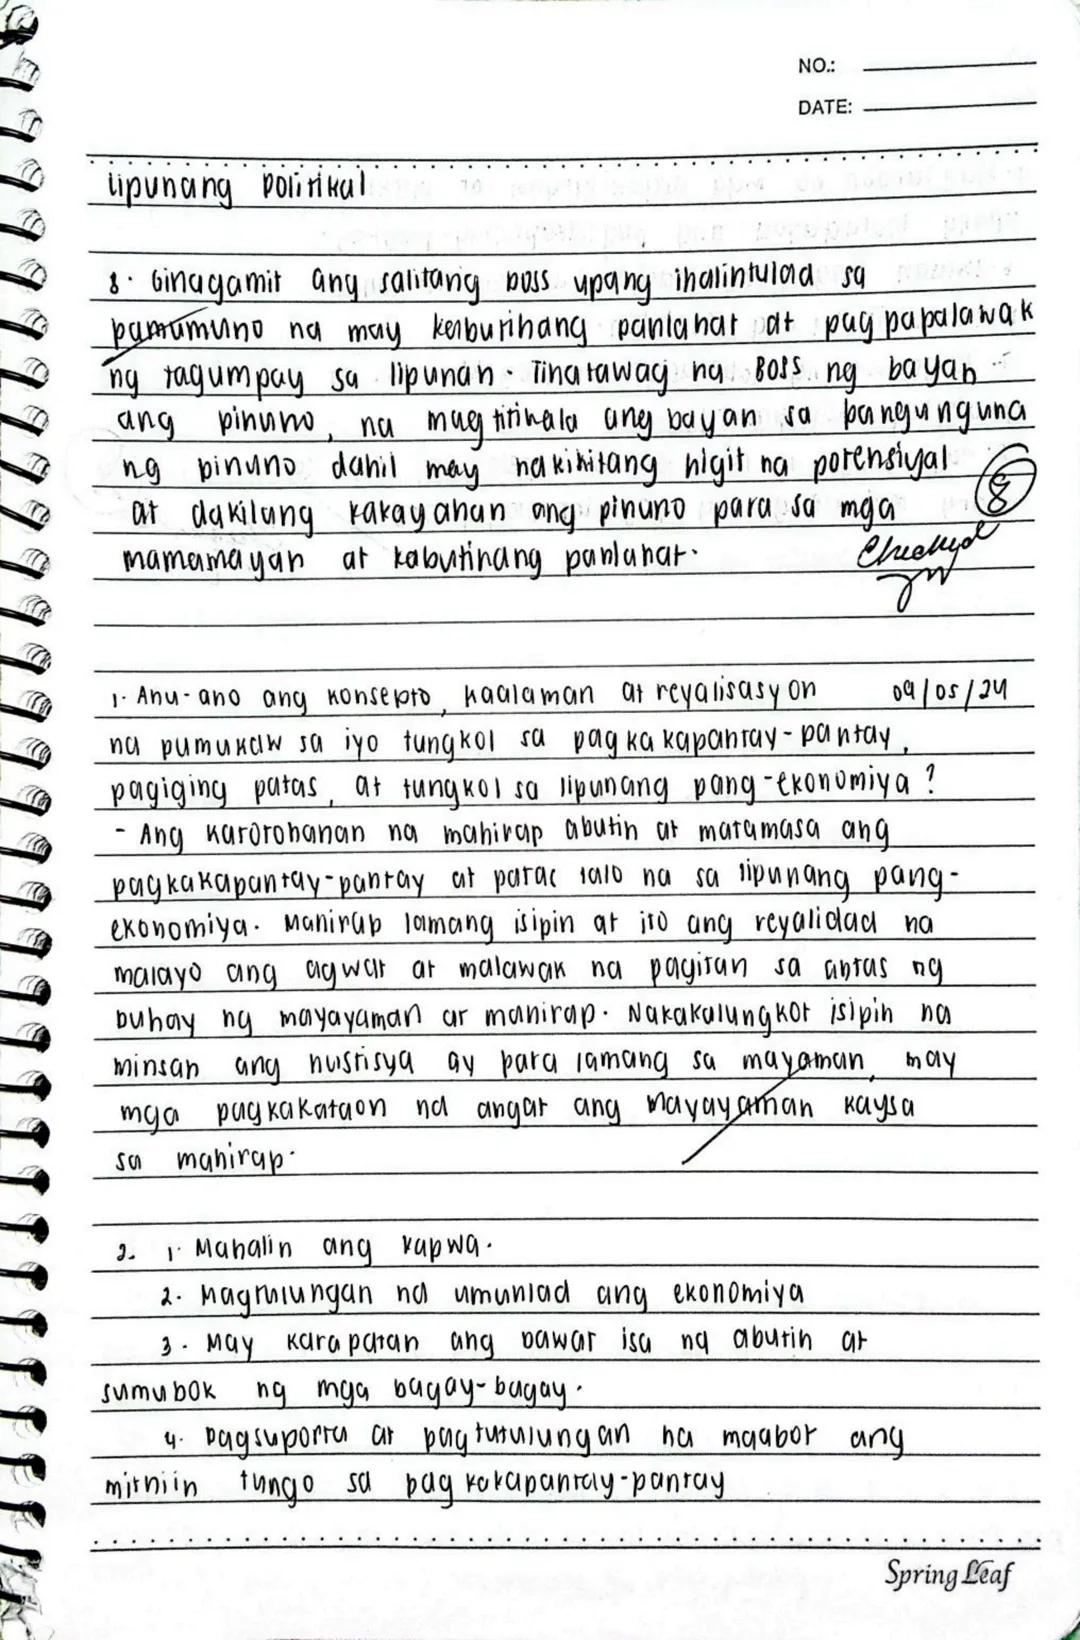 NO.:
DATE:
lipunang politikal
8. Ginagamit ang salitang boss upang ihalintulad sa
pamumuno na may kabutihang panlahat at pagpapalawak
ng tagumpay sa lipunan. Tinatawag na Boss ng bayan
ang pinuno, na magtitiwala ang bayan sa pangunguna
ng pinuno dahil may nakikitang higit na potensiyal
at dakilang kakayahan ang pinuno para sa mga
8
mamamayan at kabutihang panlahat.
Checked
1. Anu-ano ang konsepto, kaalaman at reyalisasyon 09/05/24
na pumukaw sa iyo tungkol sa pagkakapantay-pantay,
pagiging patas, at tungkol sa lipunang pang-ekonomiya?
- Ang katotohanan na mahirap abutin at matamasa ang
pagkakapantay-pantay at patac lalo na sa lipunang pang-
ekonomiya. Mahirap lamang isipin at ito ang reyalidad na
malayo ang agwat at malawak na pagitan sa antas ng
buhay ng mayayaman at mahirap. Nakakalungkot isipin na
minsan ang hustisya ay para lamang sa mayaman, may
mga pagkakataon na angat ang mayayaman kaysa
sa mahirap.
2. 1. Mahalin ang kapwa.
2. Magtulungan na umunlad ang ekonomiya
3. May karapatan ang bawat isa na abutin at
sumubok ng mga bagay-bagay.
4. Pagsuporta at pagtutulungan na maabot ang
mithiin tungo sa pagkakapantay-pantay
Spring Leaf